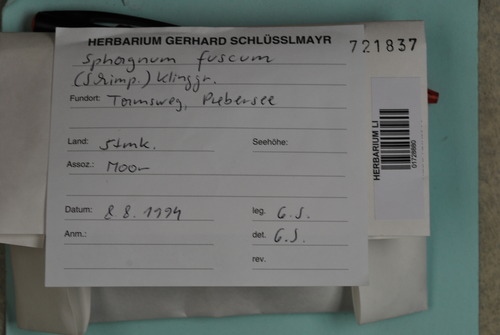 HERBARIUM GERHARD SCHLÜSSLMAYR
721837
Sphagnum fuscum
(Schimp.) Klinggr.
Fundort: Tamsweg, Prebersee
Land: Stmk. Seehöhe:
Assoz.: Moor
Datum: 8.8.1994 leg. G.S.
Anm.: det. G.S.
rev.
HERBARIUM LI
01728680